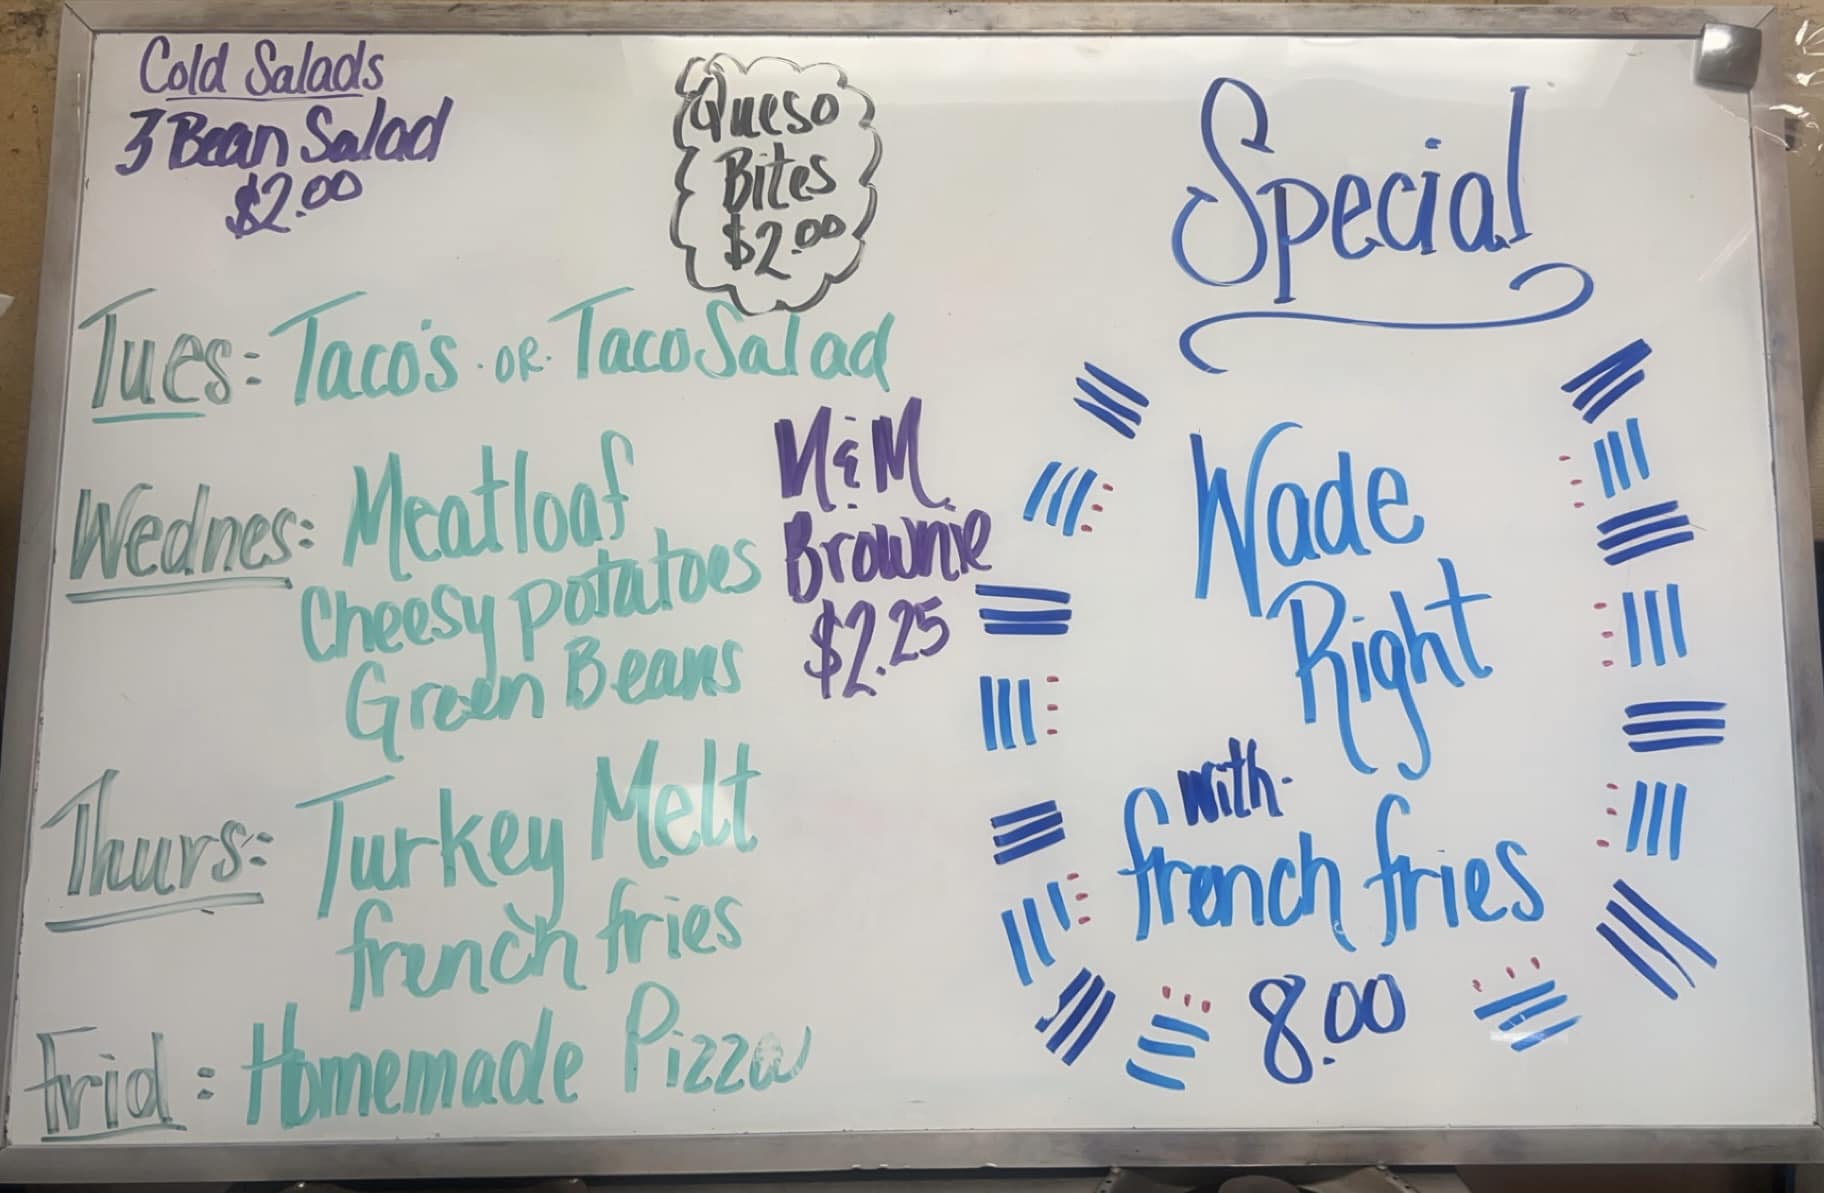 Cold Salads
3 Bean Salad
$2.00
Queso
Bites
$2.00
Tues: Taco's OR Taco Salad
Wednes: Meatloaf
Cheesy potatoes
Green Beans
M&M
Brownie
$2.25
Thurs: Turkey Melt
french fries
Frid: Homemade Pizza
Special
Wade
Right
with-
french fries
8.00